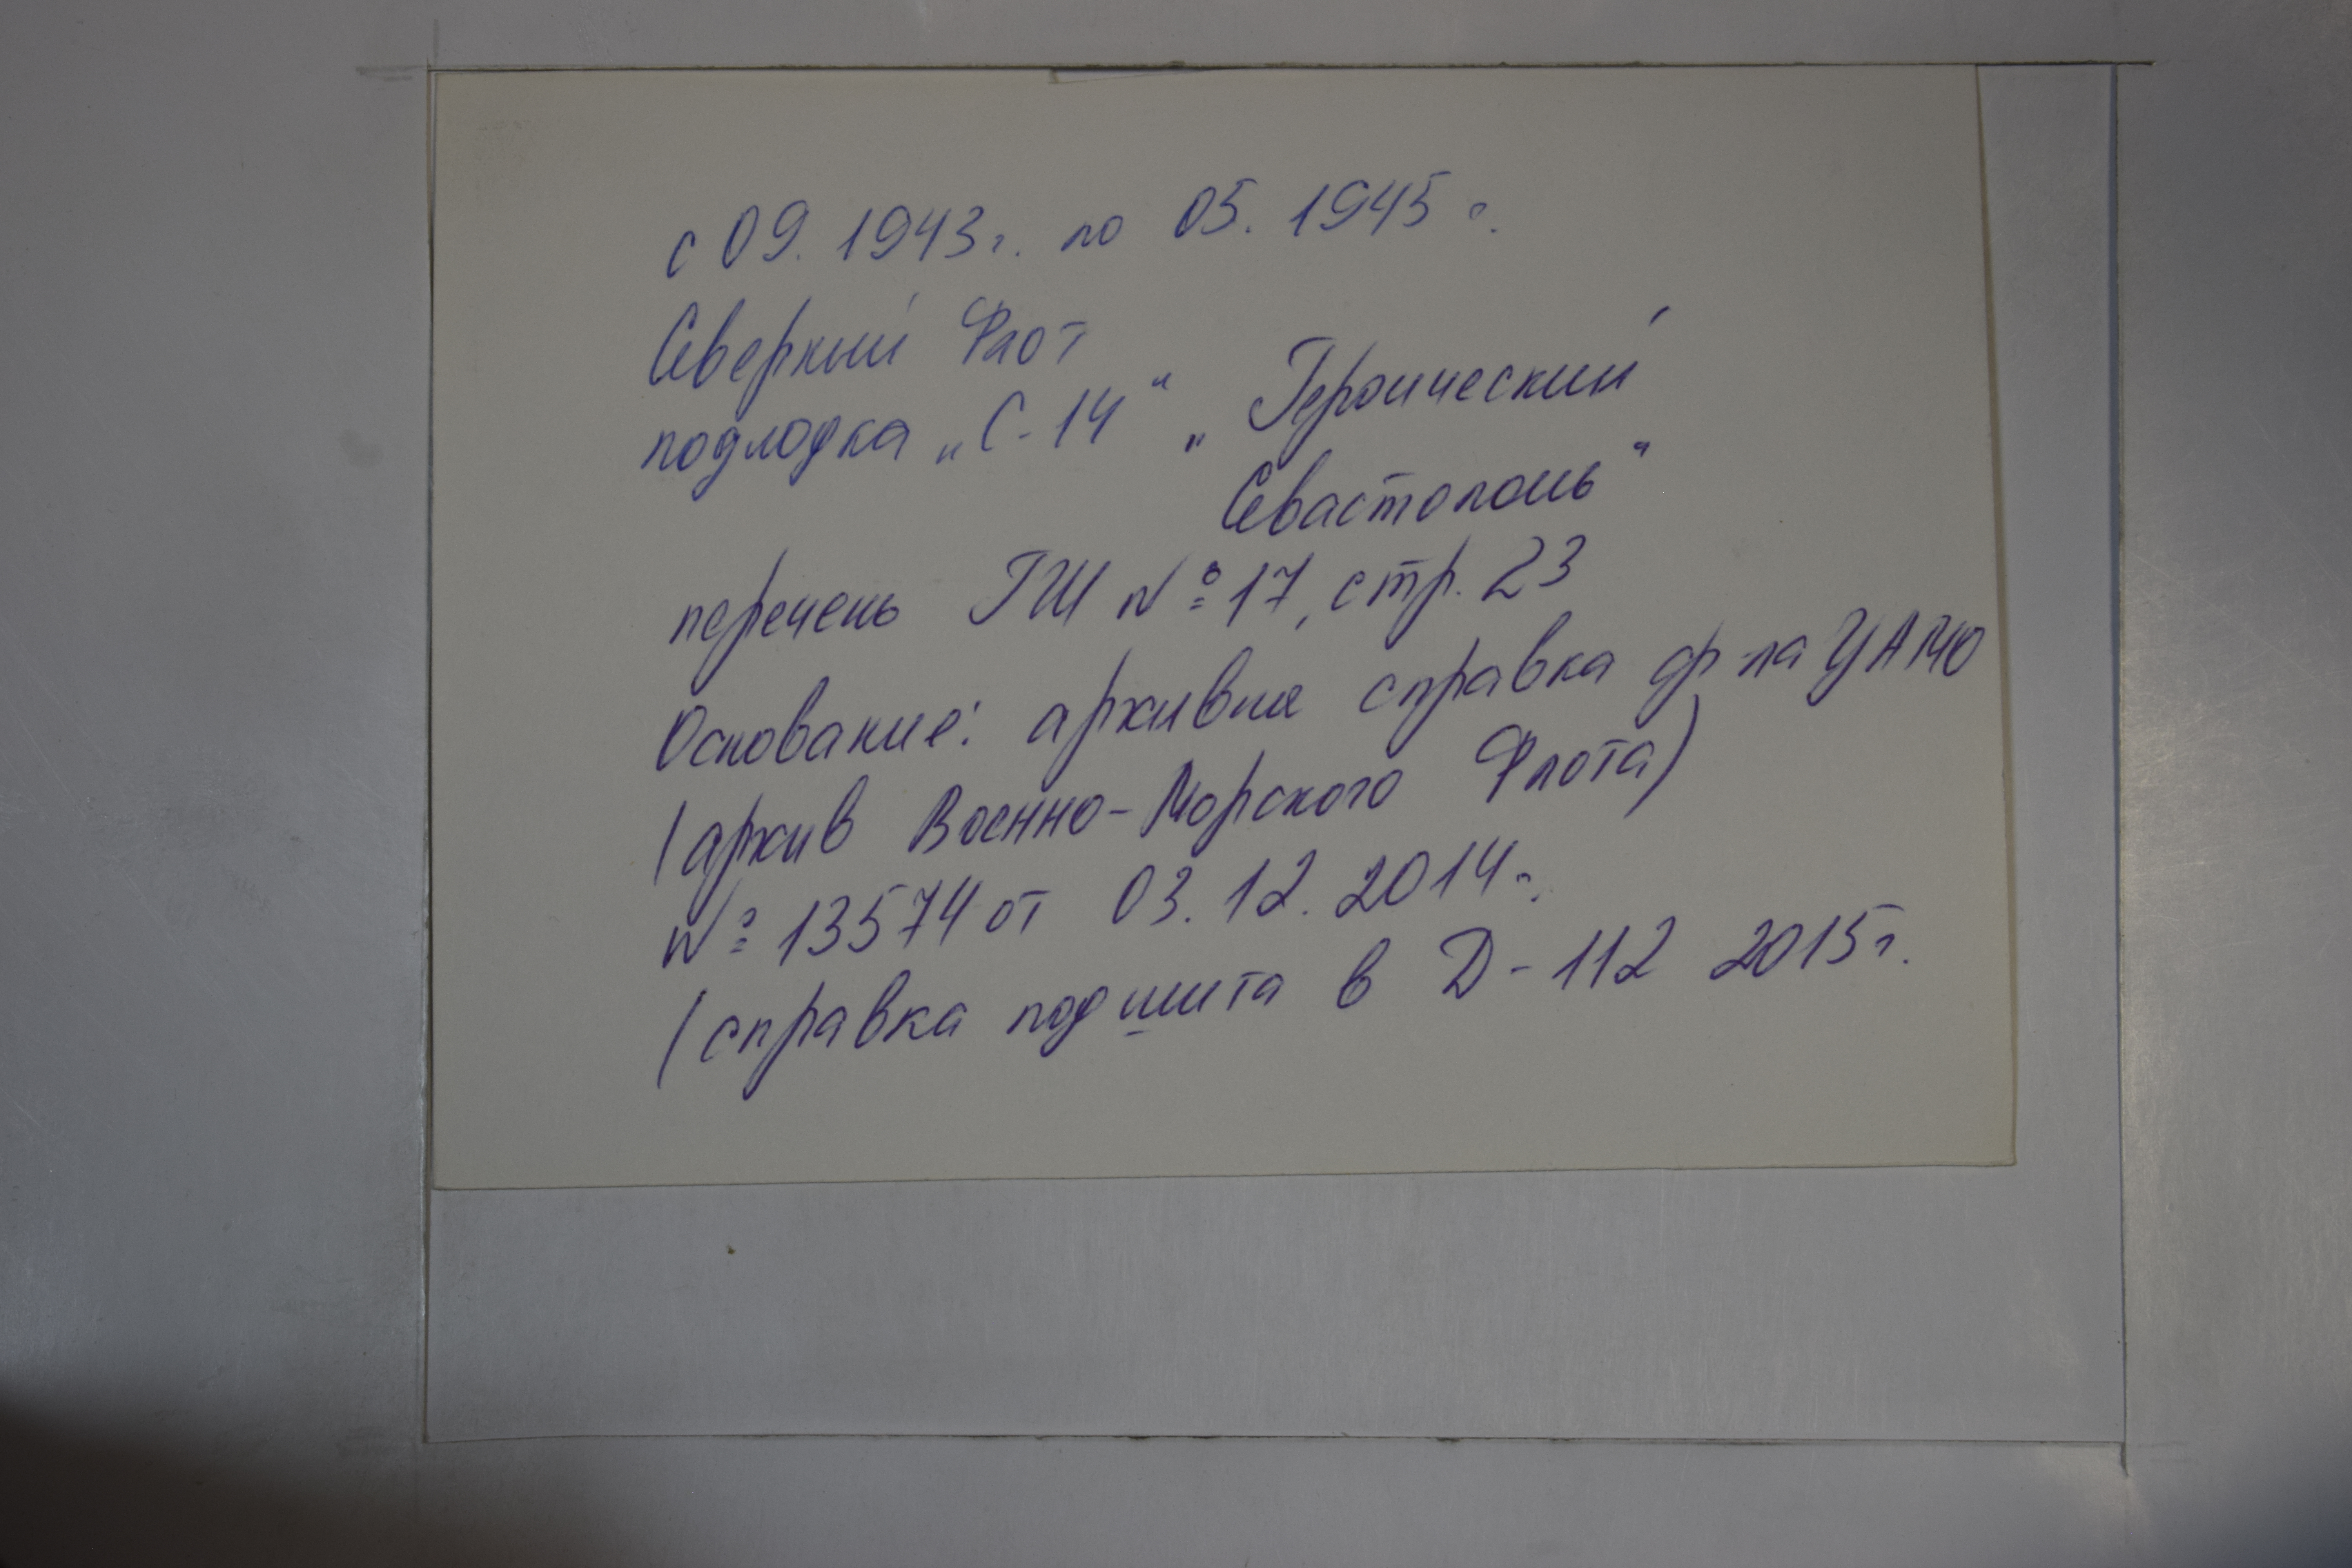 с 09. 1943г. по 05. 1945 г.
Северный Флот
подлодка „С-14" „Героический
Севастополь"
перечень ГШ №17, стр. 23
Основание: архивная справка ф-ла ЦАМО
(архив Военно-Морского Флота)
№ 13574 от 03. 12. 2014г.
(справка подшита в Д-112 2015г.